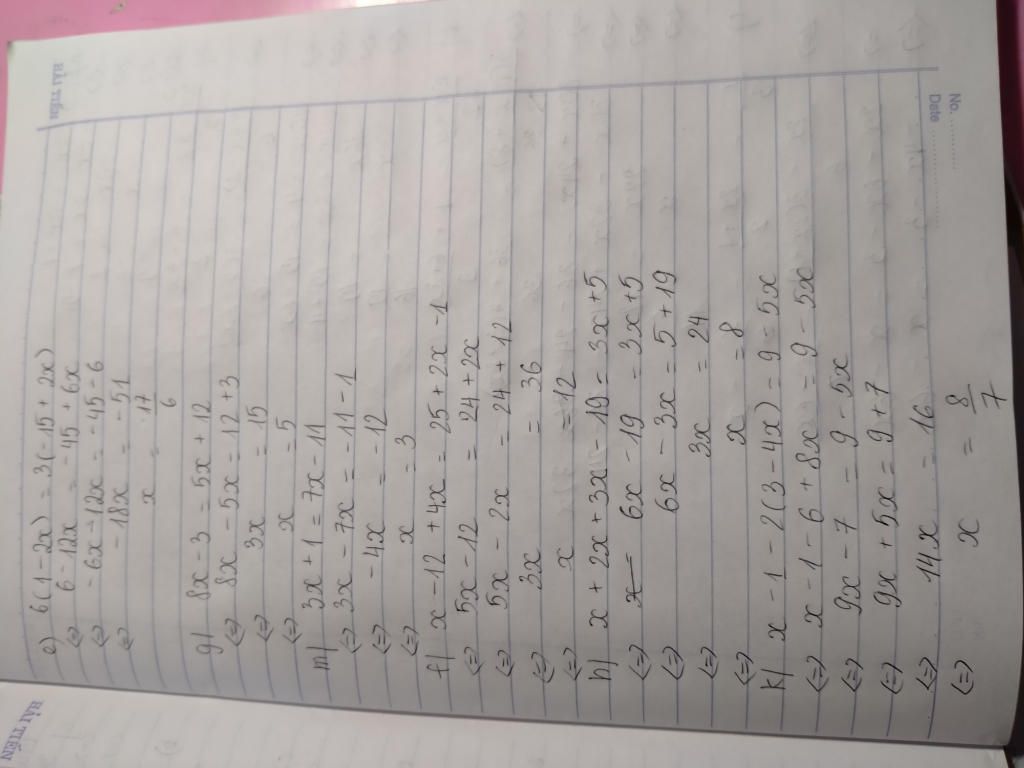 HẢI TIẾN
No. ............
Date ..................
e) 6(1-2x) = 3(-15 + 2x)
(=) 6-12x = -45 + 6x
(=) -6x-12x = -45-6
(=) -18x = -51
x = 17/6
g) 8x-3 = 5x+12
(=) 8x-5x = 12+3
(=) 3x = 15
(=) x = 5
m) 3x+1 = 7x-11
(=) 3x-7x = -11-1
(=) -4x = -12
(=) x = 3
f) x-12+4x = 25+2x-1
(=) 5x-12 = 24+2x
(=) 5x-2x = 24+12
(=) 3x = 36
(=) x = 12
h) x+2x+3x-19 = 3x+5
(=) 6x-19 = 3x+5
(=) 6x-3x = 5+19
(=) 3x = 24
(=) x = 8
k) x-1-2(3-4x) = 9-5x
(=) x-1-6+8x = 9-5x
(=) 9x-7 = 9-5x
(=) 9x+5x = 9+7
(=) 14x = 16
(=) x = 8/7
HẢI TIẾN